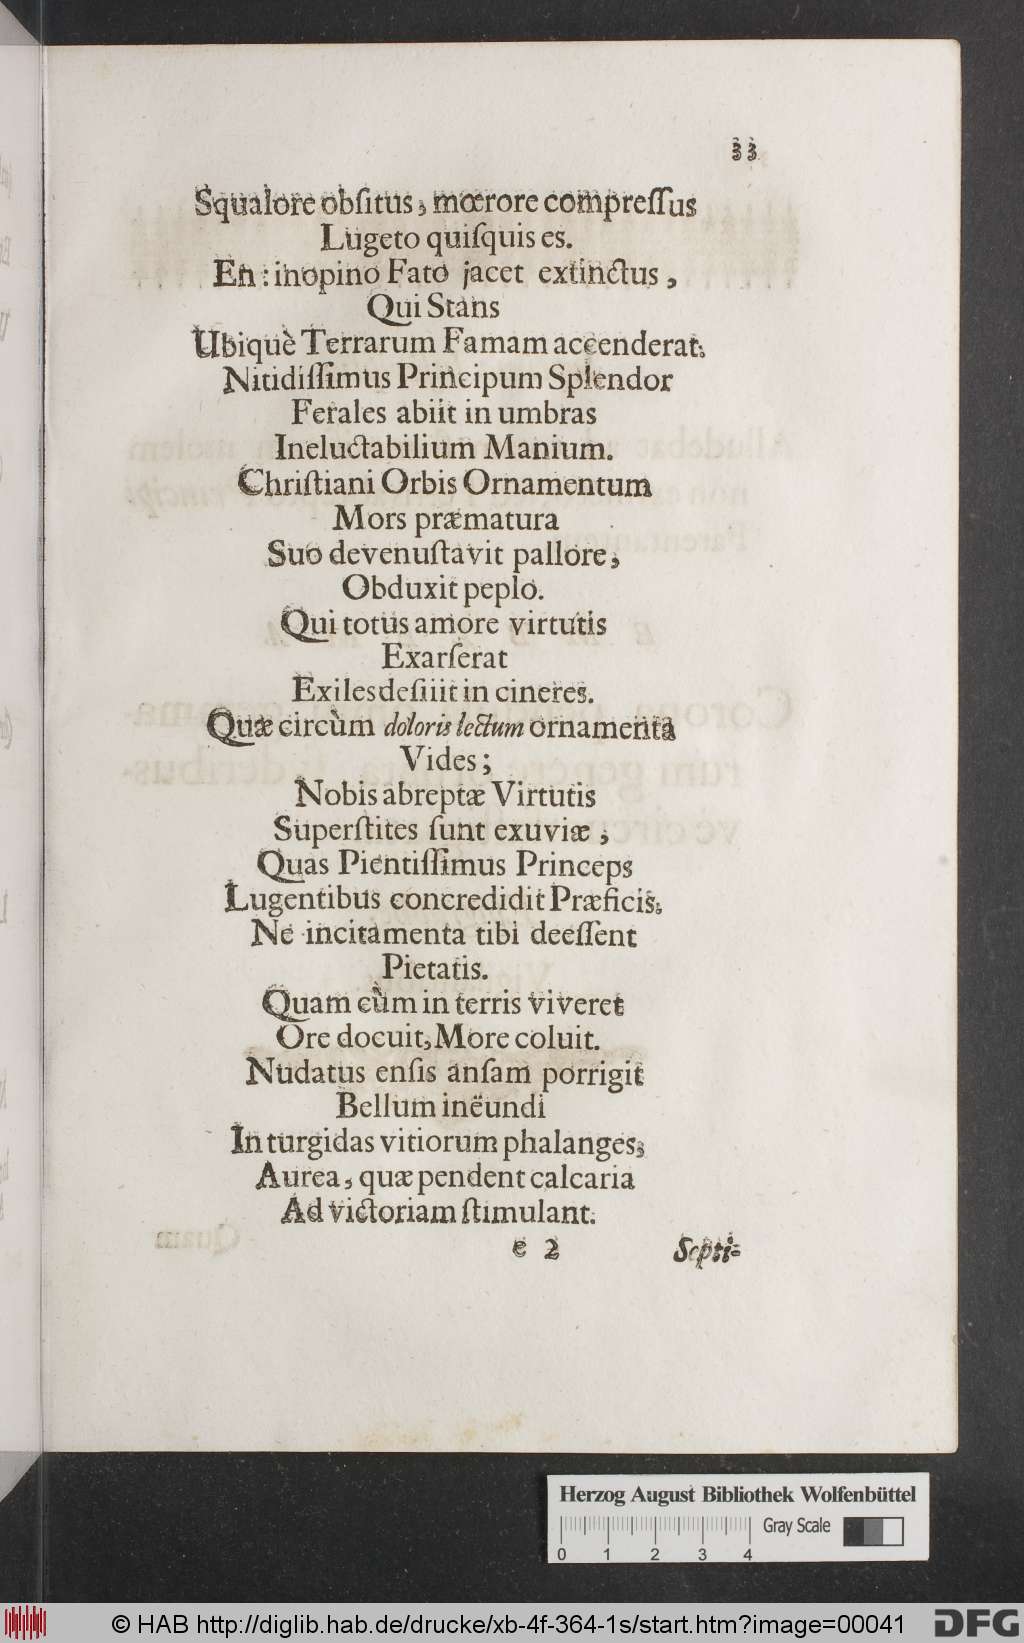 33
Squalore obſitus, mœrore compreſſus
Lugeto quiſquis es.
En: inopino Fato jacet extinctus,
Qui Stans
Ubiquè Terrarum Famam accenderat.
Nitidiſſimus Principum Splendor
Ferales abiit in umbras
Ineluctabilium Manium.
Chriſtiani Orbis Ornamentum
Mors præmatura
Suo devenuſtavit pallore,
Obduxit peplo.
Qui totus amore virtutis
Exarſerat
Exiles deſiiit in cineres.
Quæ circùm doloris lectum ornamenta
Vides;
Nobis abreptæ Virtutis
Superſtites ſunt exuviæ,
Quas Pientiſſimus Princeps
Lugentibus concredidit Præficis.
Ne incitamenta tibi deeſſent
Pietatis.
Quam cùm in terris viveret
Ore docuit, More coluit.
Nudatus enſis anſam porrigit
Bellum inëundi
In turgidas vitiorum phalanges,
Aurea, quæ pendent calcaria
Ad victoriam ſtimulant.
e 2 Septi-
Herzog August Bibliothek Wolfenbüttel
Gray Scale
0 1 2 3 4
© HAB http://diglib.hab.de/drucke/xb-4f-364-1s/start.htm?image=00041
DFG